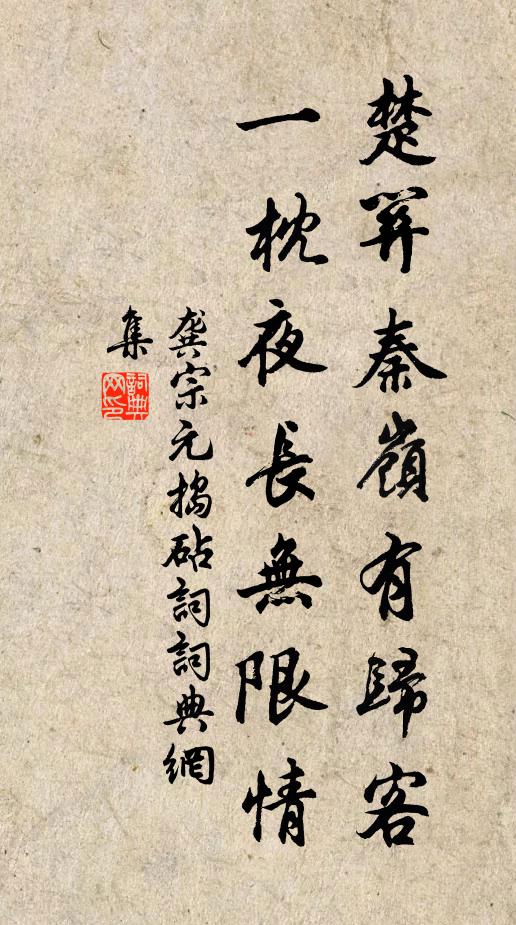 楚關秦嶺有歸客
一枕夜長無限情
龔宗元搗砧詞詞典網
集
詞典网印